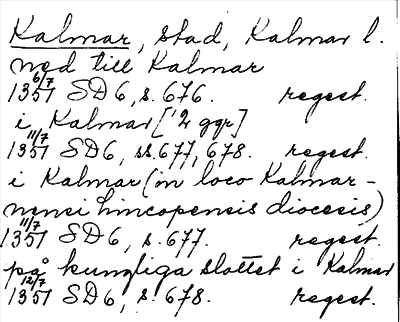 Kalmar, stad, Kalmar l.
ned till Kalmar
1351 6/7 SD 6, s. 676. regest.
i Kalmar ['2 ggr]
1351 11/7 SD 6, ss. 677, 678. regest.
i Kalmar (in loco Kalmar-
nensi lincopensis diocesis)
1351 11/7 SD 6, s. 677. regest.
på kungliga slottet i Kalmar
1351 12/7 SD 6, s. 678. regest.